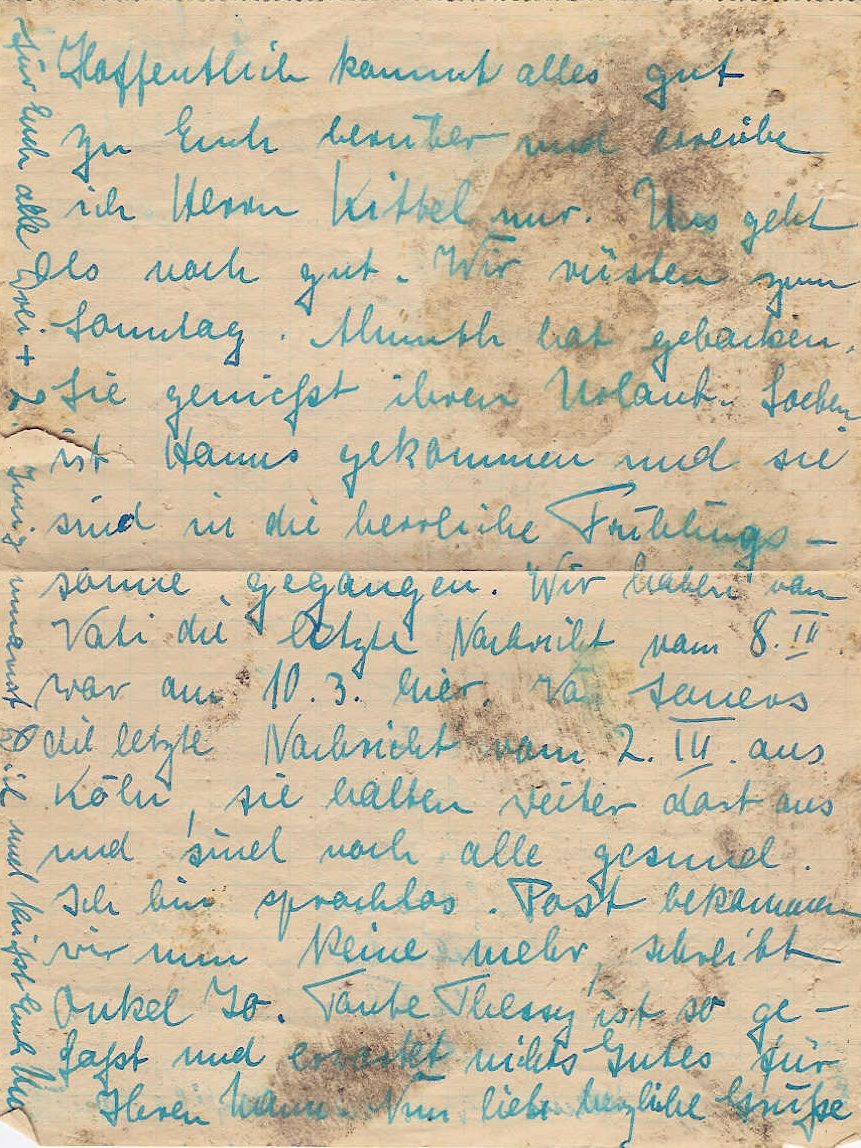 Hoffentlich kommt alles gut
zu Euch herüber und erreiche
ich Herrn Kittel nur. Uns geht
es noch gut. Wir rüsten zum
Sonntag. Almuth hat gebacken.
Sie genießt ihren Urlaub. Soeben
ist Hanns gekommen und sie
sind in die herrliche Frühlings-
sonne gegangen. Wir haben von
Vati die letzte Nachricht vom 8. III.
war am 10.3. hier. Va
die letzte Nachricht vom 2. III. aus
Köln, sie halten weiter dort aus
und sind noch alle gesund.
Ich bin sprachlos. Post bekommen
wir nun keine mehr, schreibt
Onkel Jo. Tante Thessy ist so ge-
faßt und erwartet nichts Gutes für
Ihren Mann. Nun liebe herzliche Grüße
für Euch alle Drei + 2. Innig umarmt Dich und küßt Euch